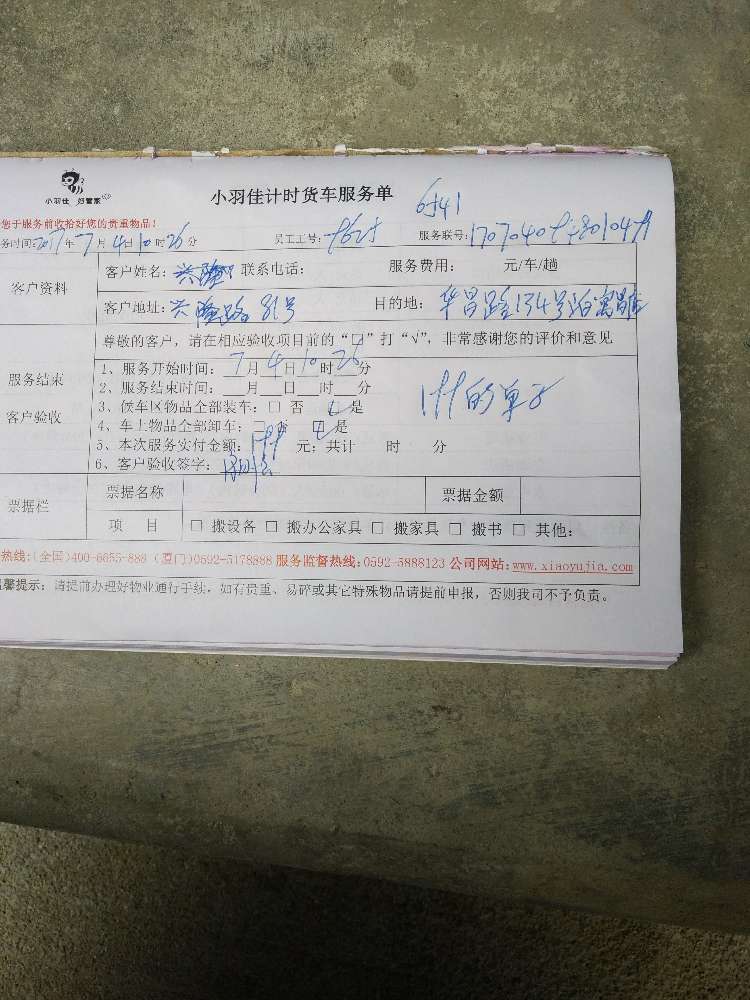 小羽佳 好管家
小羽佳计时货车服务单
6541
您于服务前收拾好您的贵重物品!
务时间:2017年7月4日10时26分 员工工号: 服务联号:
客户资料
客户姓名:兴隆 联系电话: 服务费用: 元/车/趟
客户地址:兴隆路81号 目的地:华昌路134号泊寓
尊敬的客户,请在相应验收项目前的“□”打“√”,非常感谢您的评价和意见
服务结束
客户验收
1、服务开始时间:7月4日10时26分
2、服务结束时间:__月__日__时__分
3、候车区物品全部装车:□ 否 □ 是
4、车上物品全部卸车:□ 否 □ 是
5、本次服务实付金额:199元;共计 时 分
199的单子
6、客户验收签字:
票据栏
票据名称 票据金额
项 目 □ 搬设备 □ 搬办公家具 □ 搬家具 □ 搬书 □ 其他:
热线:(全国)400-6655-888 (厦门)0592-5178888 服务监督热线:0592-5888123 公司网站:www.xiaoyujia.com
温馨提示:请提前办理好物业通行手续,如有贵重、易碎或其它特殊物品请提前申报,否则我司不予负责。